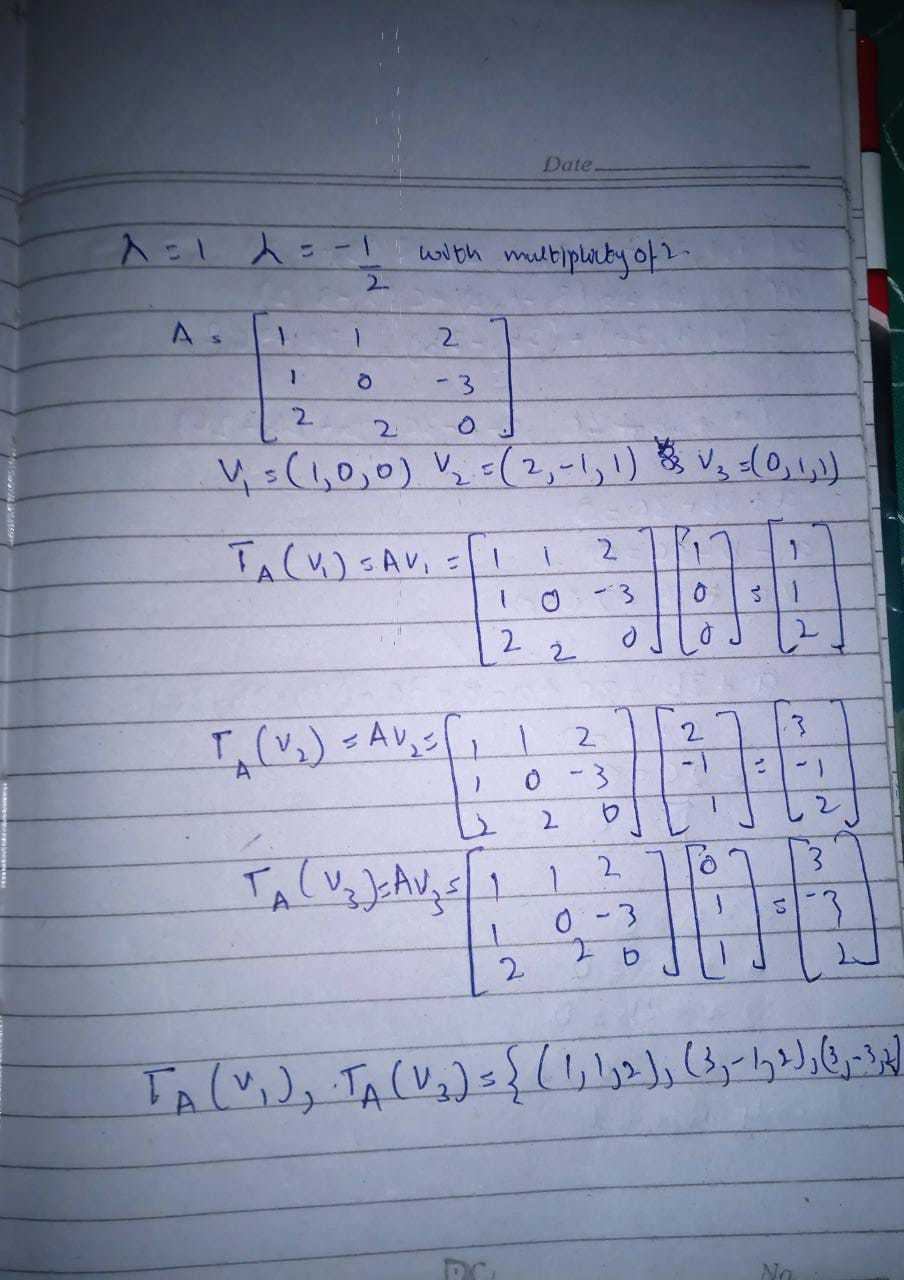 Date
λ = 1 λ = -1/2 with multiplicity of 2
A = [1 1 2
1 0 -3
2 2 0]
V₁ = (1,0,0) V₂ = (2,-1,1) & V₃ = (0,1,1)
T_A(V₁) = AV₁ = [1 1 2] [1] = [1]
[1 0 -3] [0] [1]
[2 2 0] [0] [2]
T_A(V₂) = AV₂ = [1 1 2] [2] = [3]
[1 0 -3] [-1] [-1]
[2 2 0] [1] [2]
T_A(V₃) = AV₃ = [1 1 2] [0] = [3]
[1 0 -3] [1] [-3]
[2 2 0] [1] [2]
T_A(V₁), T_A(V₃) = {(1,1,2), (3,-1,2), (3,-3,2)
DC No